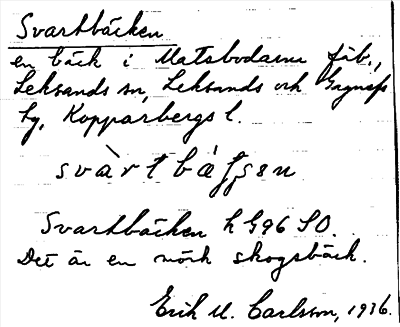 Svartbäcken
en bäck i Matsbodarna fäb.,
Leksands sn, Leksands och Gagnefs
tg, Kopparbergs l.
Svartbäcken h G96 SO.
Det är en mörk skogsbäck.
Erik M. Carlsson, 1936.